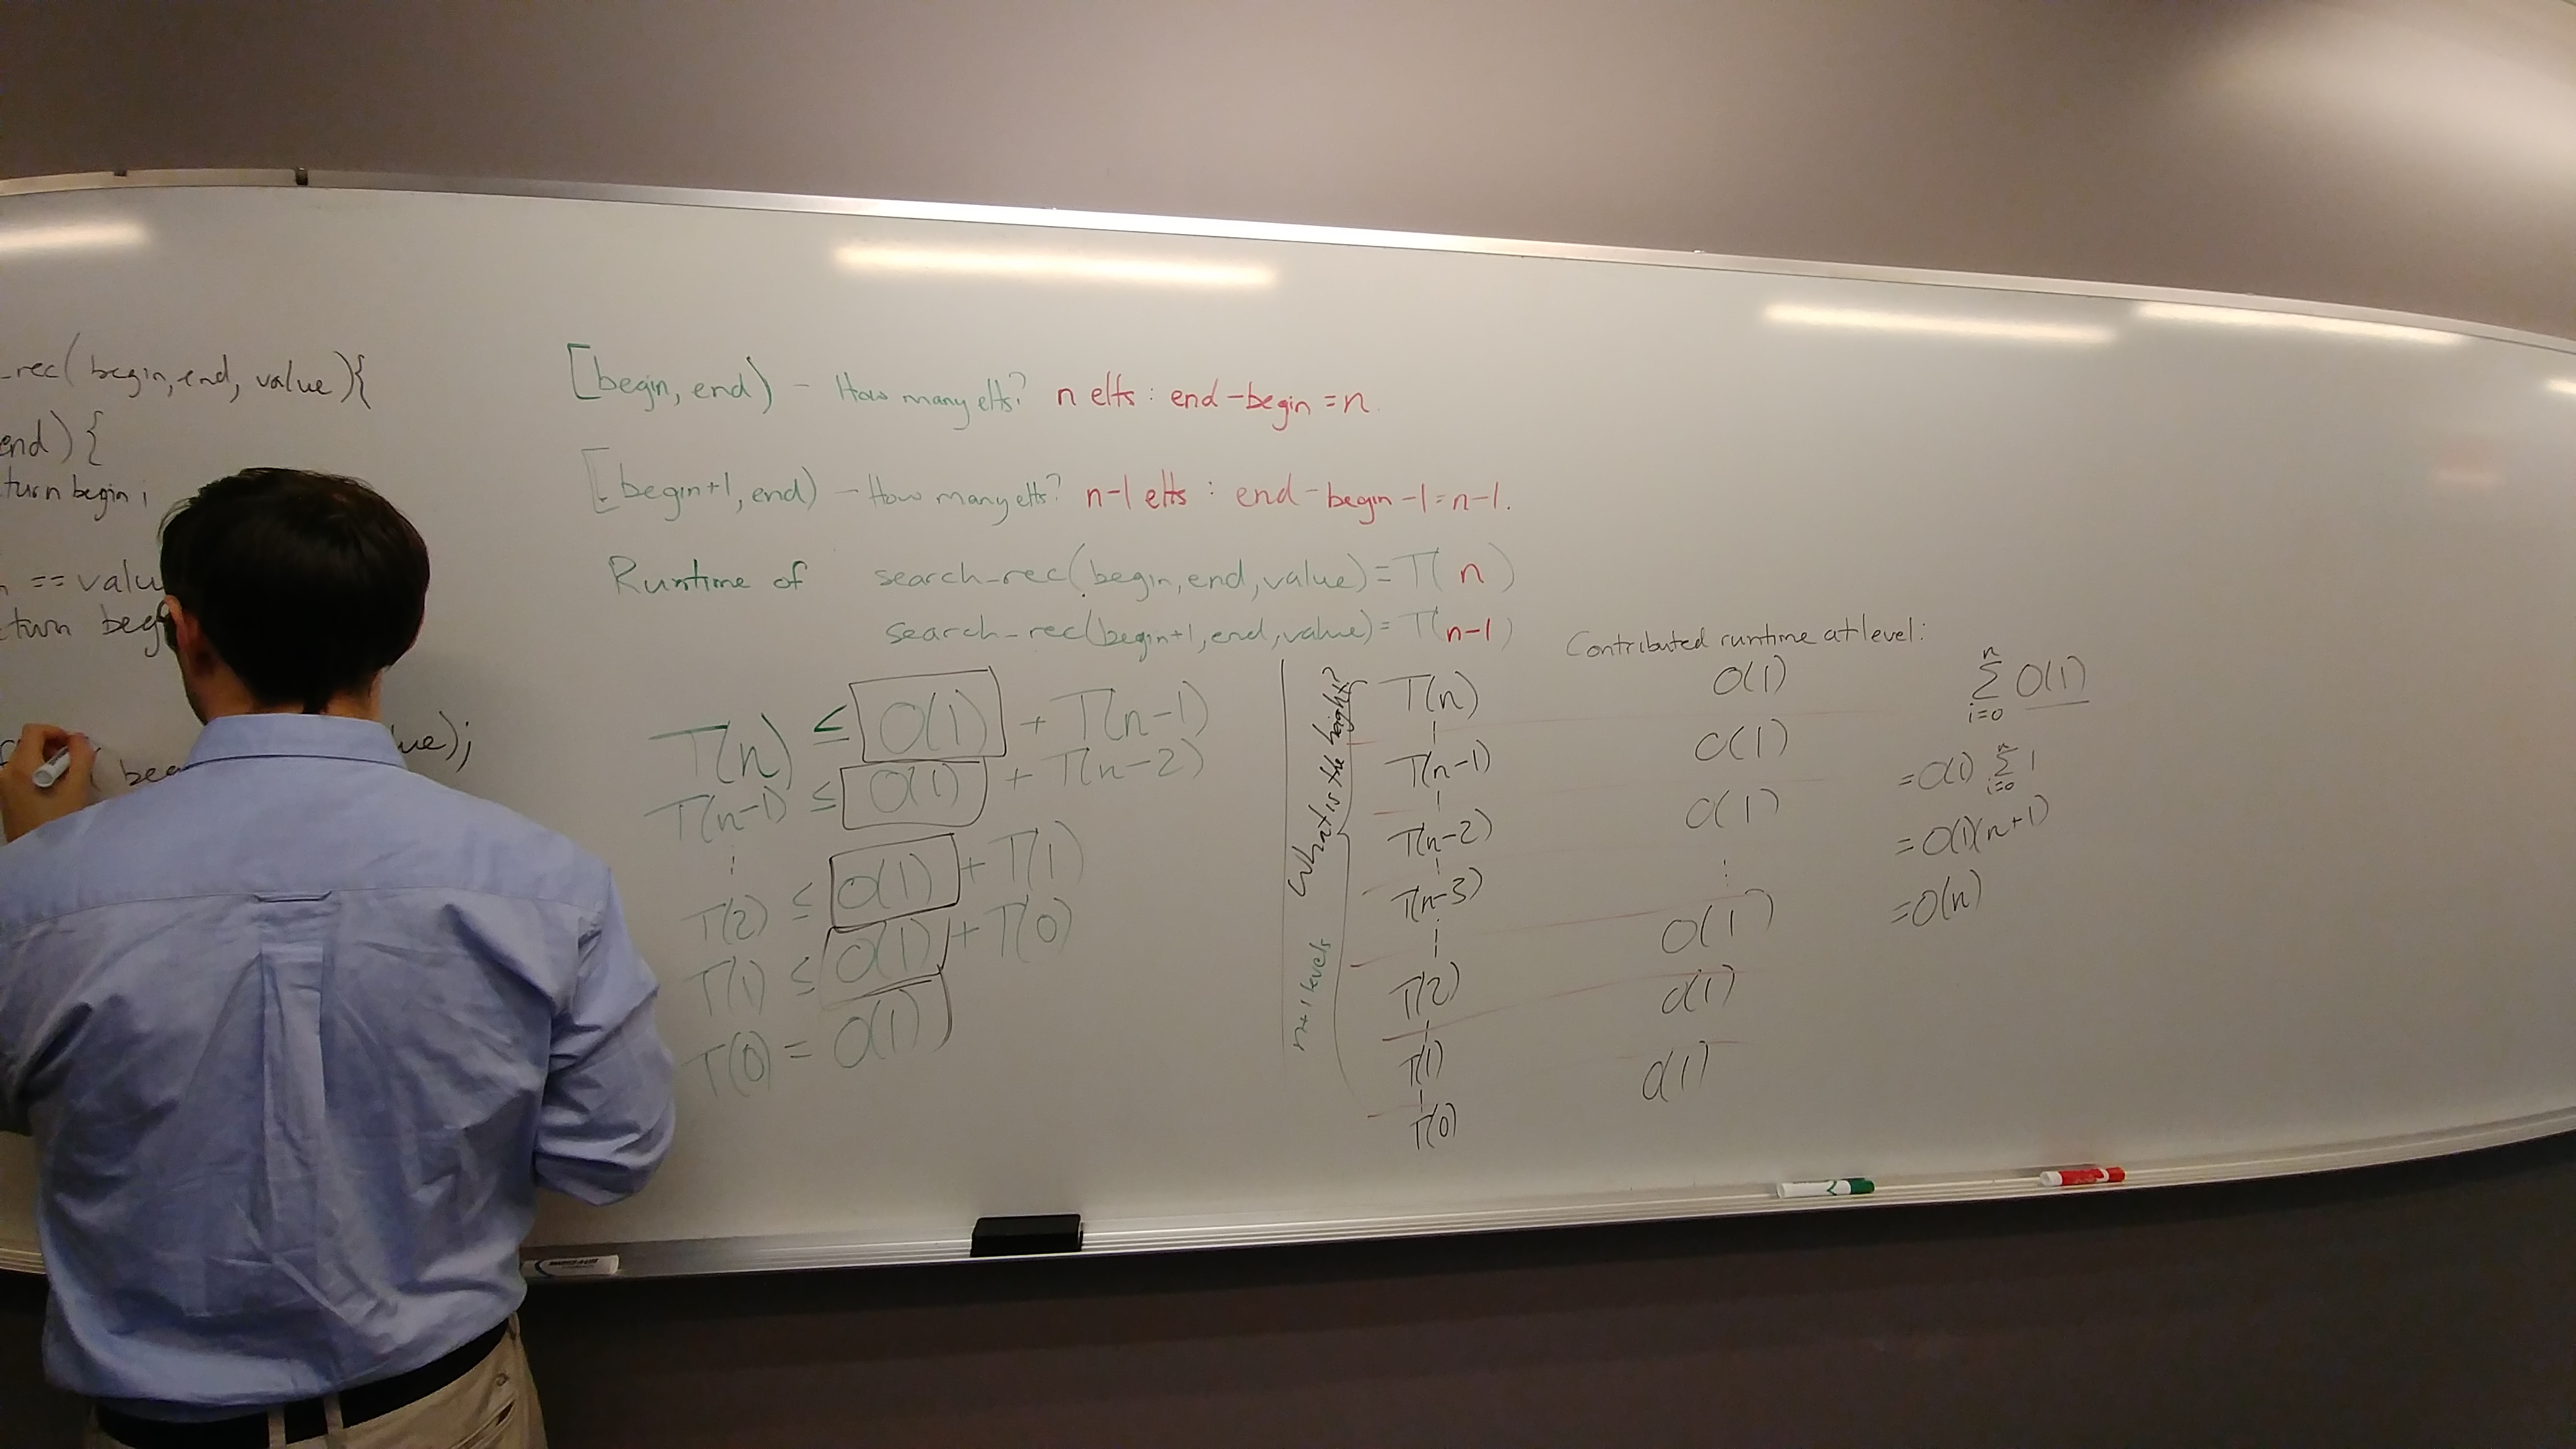 _rec(begin,end,value){
end){
turn begin;
== valu
turn beg
ue);
[begin, end) - How many elts? n elts: end-begin=n.
[begin+1, end) - How many elts? n-1 elts: end-begin-1=n-1.
Runtime of search_rec(begin,end,value)=T(n)
search_rec(begin+1,end,value)=T(n-1)
T(n) ≤ O(1) + T(n-1)
T(n-1) ≤ O(1) + T(n-2)
⋮
T(2) ≤ O(1) + T(1)
T(1) ≤ O(1) + T(0)
T(0) = O(1)
What is the height?
n+1 levels
T(n)
T(n-1)
T(n-2)
T(n-3)
T(2)
T(1)
T(0)
Contributed runtime at level:
O(1)
O(1)
O(1)
⋮
O(1)
O(1)
O(1)
n
Σ O(1)
i=0
n
=O(1) Σ 1
i=0
=O(1)(n+1)
=O(n)